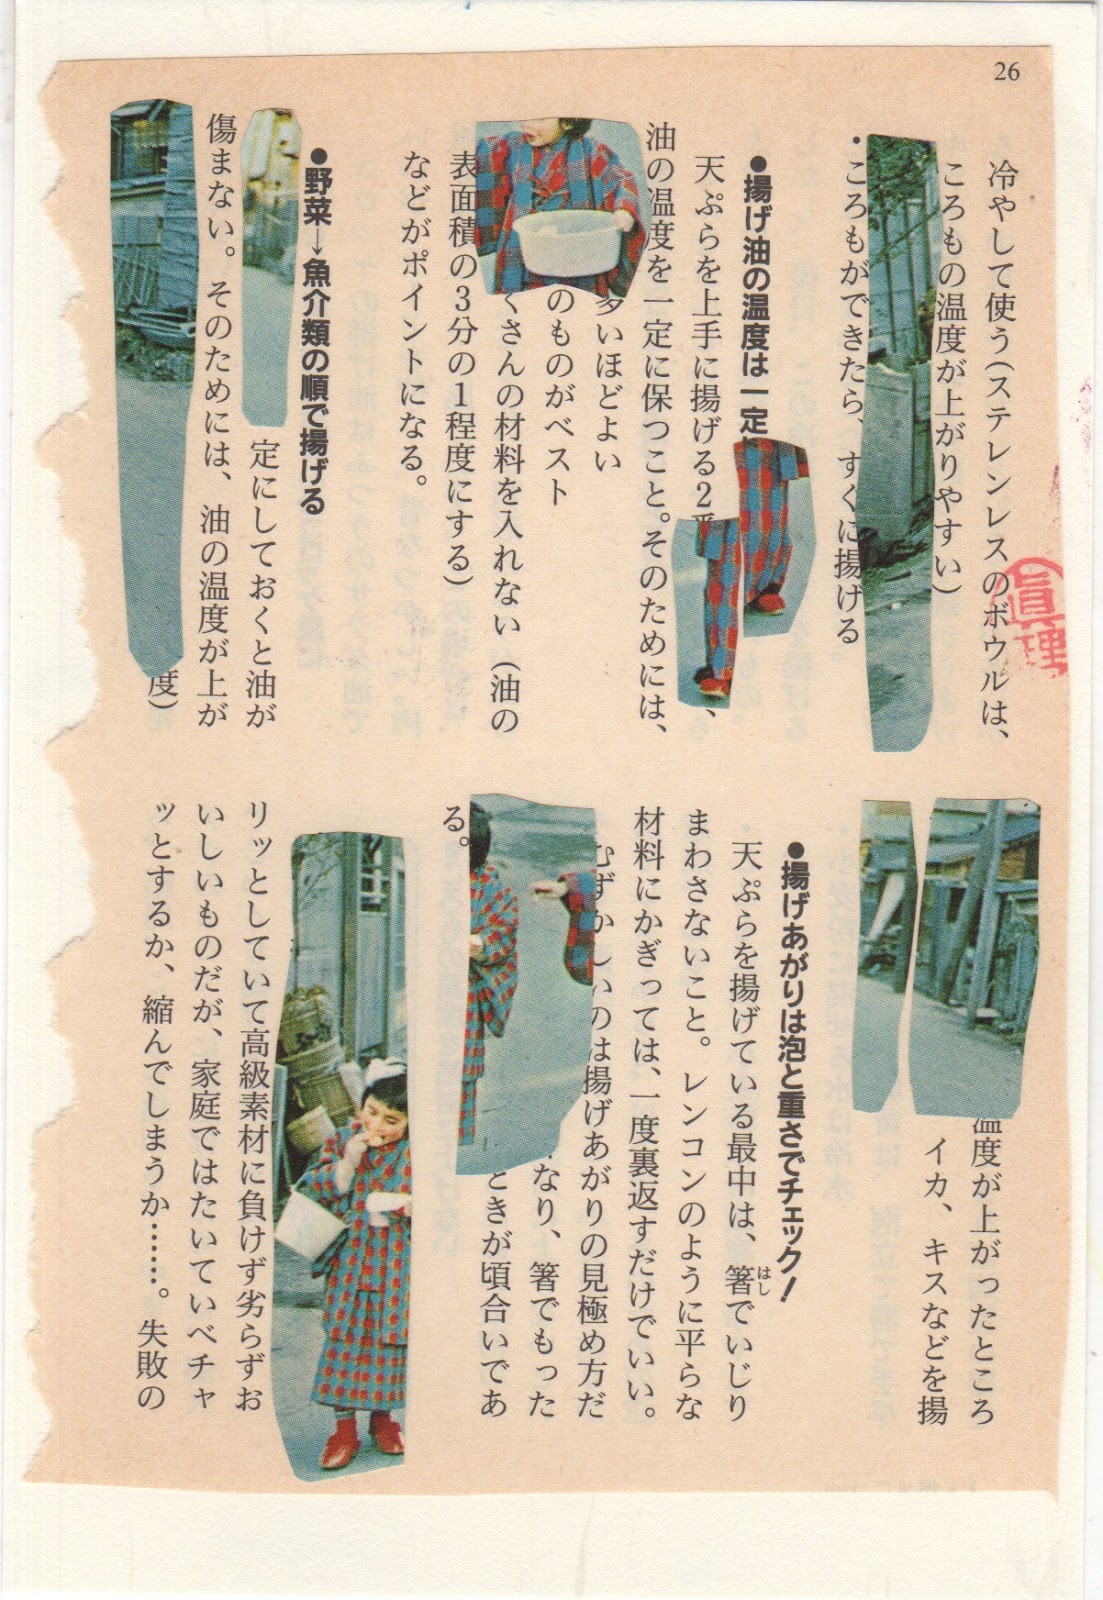 26
冷やして使う(ステレンレスのボウルは、
ころもの温度が上がりやすい)
・ころもができたら、すぐに揚げる
●揚げ油の温度は一定
天ぷらを上手に揚げる2
油の温度を一定に保つこと。そのためには、
多いほどよい
のものがベスト
くさんの材料を入れない(油の
表面積の3分の1程度にする)
などがポイントになる。
●野菜→魚介類の順で揚げる
定にしておくと油が
傷まない。そのためには、油の温度が上が
度)
温度が上がったところ
イカ、キスなどを揚
●揚げあがりは泡と重さでチェック!
天ぷらを揚げている最中は、箸でいじり
はし
まわさないこと。レンコンのように平らな
材料にかぎっては、一度裏返すだけでいい。
むずかしいのは揚げあがりの見極め方だ
なり、箸でもった
ときが頃合いであ
る。
リッとしていて高級素材に負けず劣らずお
いしいものだが、家庭ではたいていベチャ
ッとするか、縮んでしまうか……。失敗の
眞理